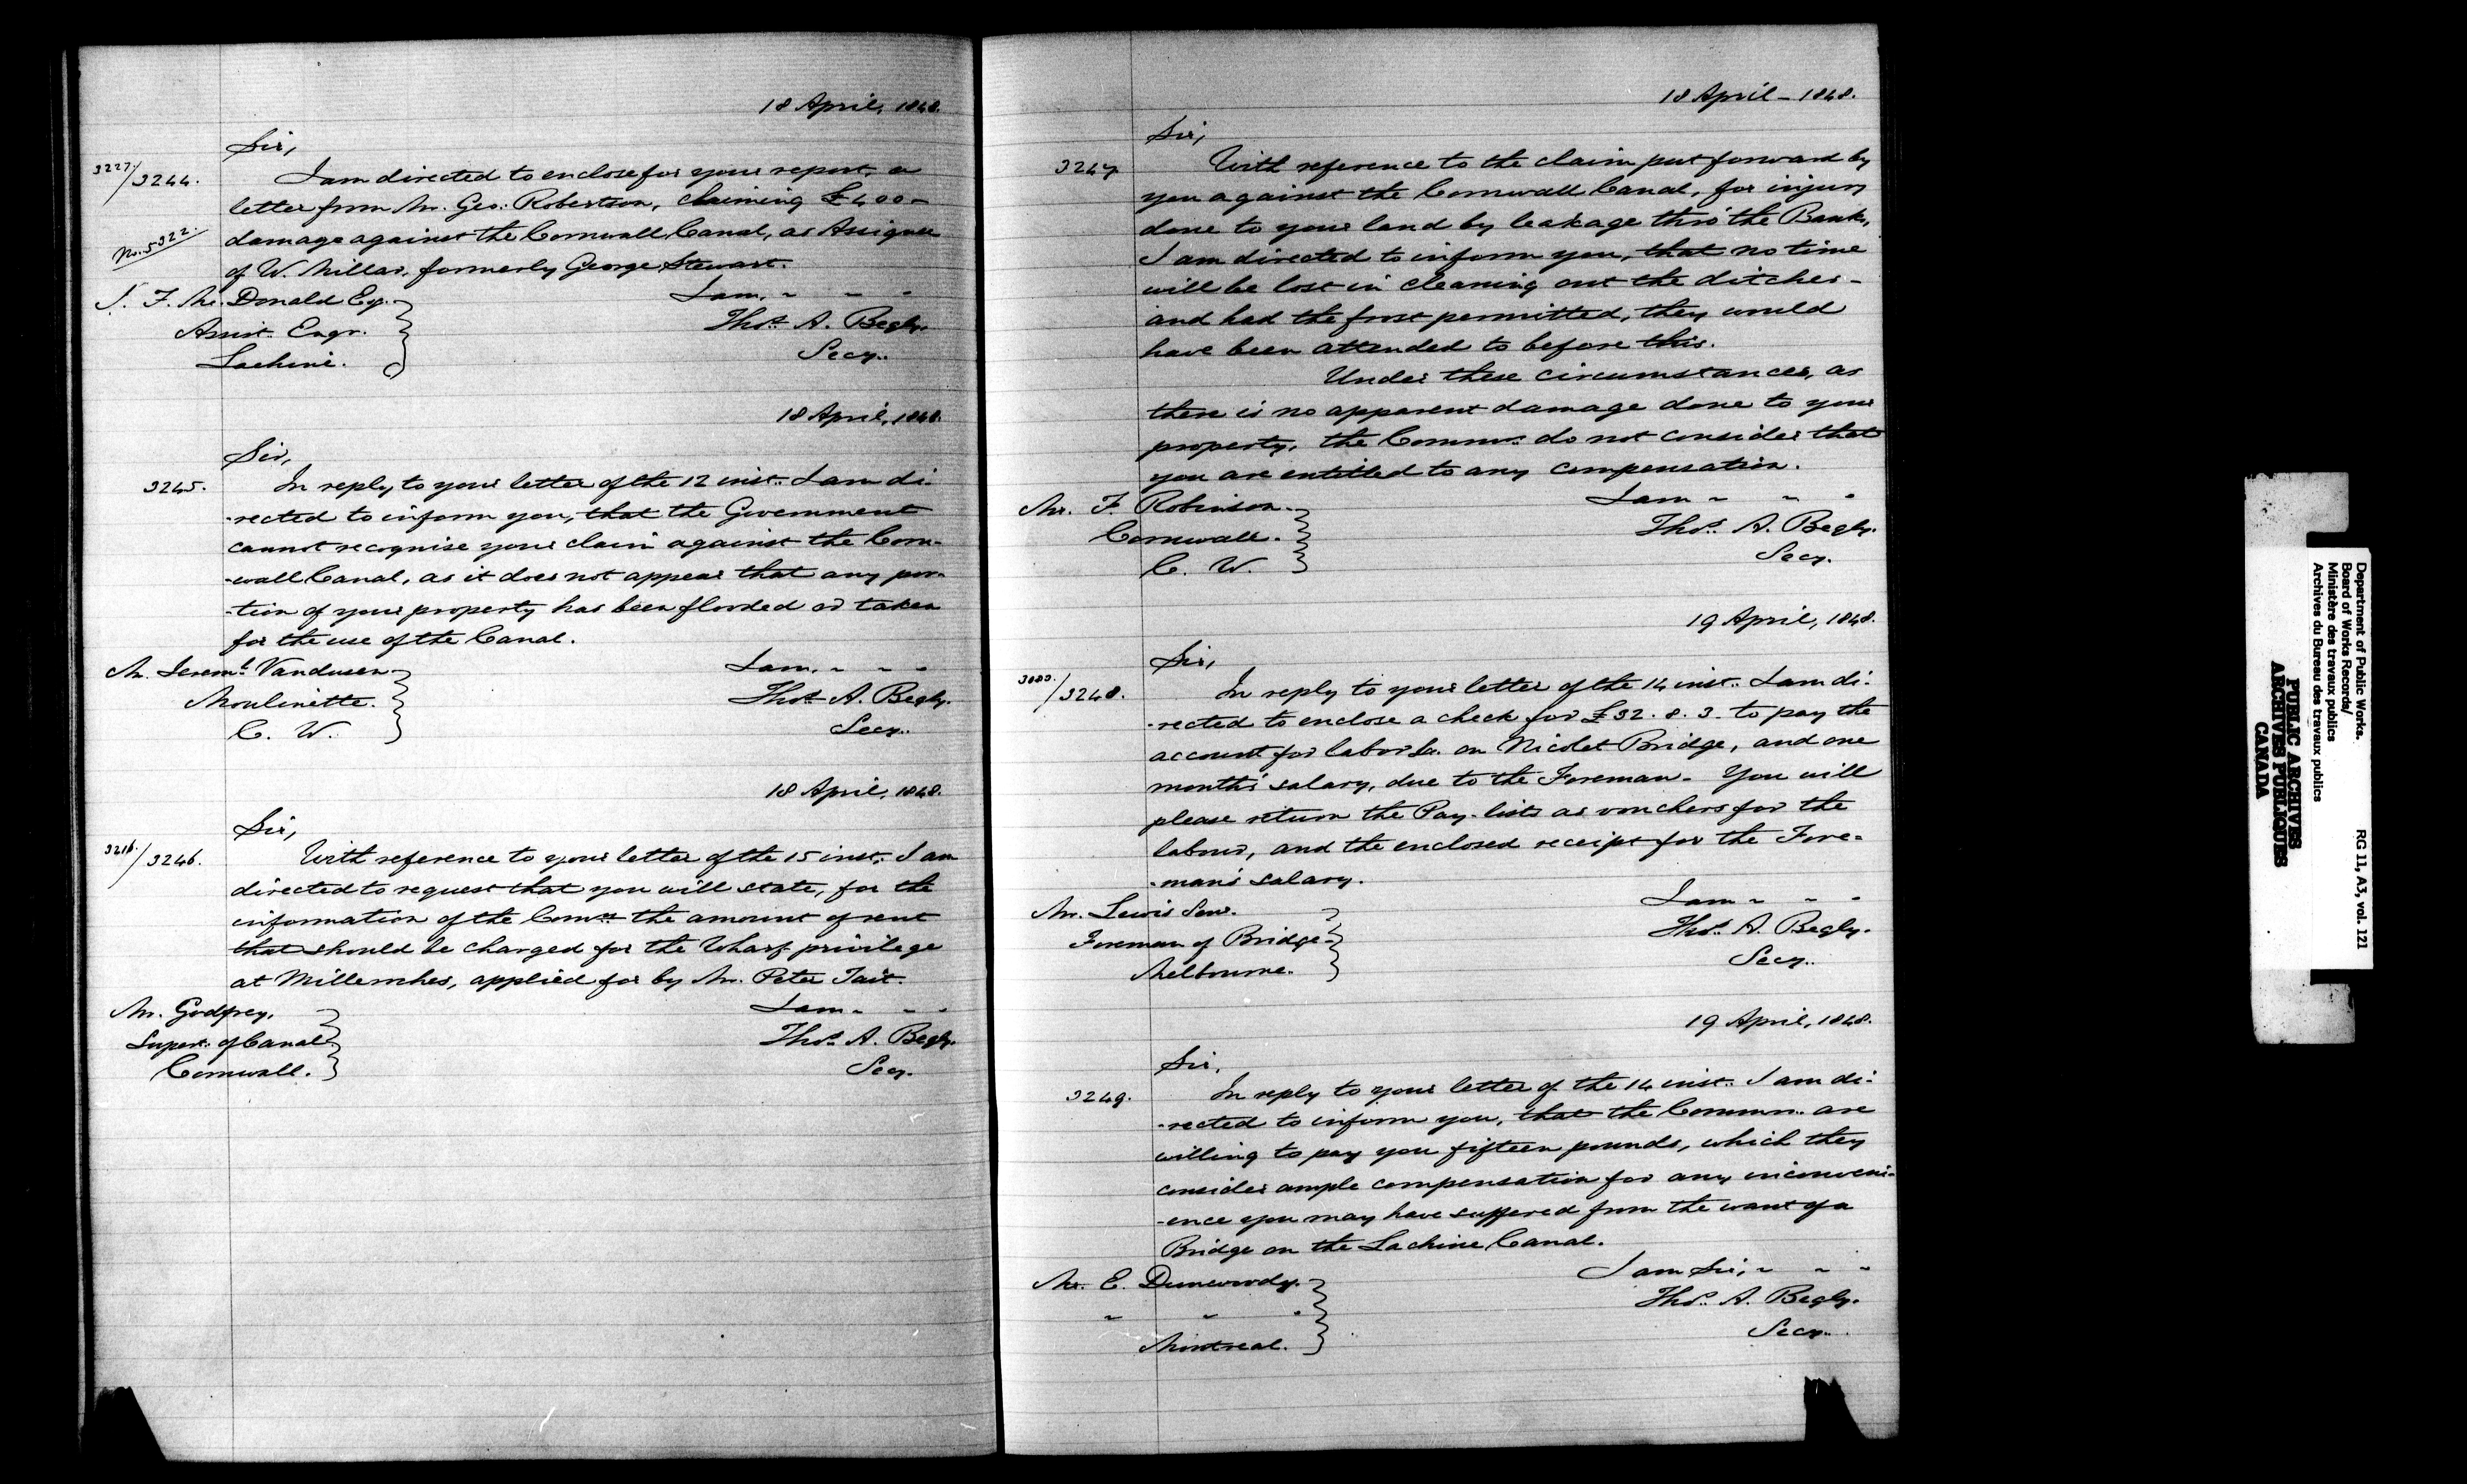 18 April, 1848.
Sir,
3227/3244. I am directed to enclose for your report, a
letter from Mr. Geo: Robertson, claiming £400-
No. 5322. damage against the Cornwall Canal, as Assignee
of W. Millar, formerly George Stewart.
J. F. Mc.Donald Esq. I am, " " "
Assist. Engr. Thos. A. Begly.
Lachine. Secy.
18 April, 1848.
Sir,
3245. In reply to your letter of the 12 inst. I am di-
-rected to inform you, that the Government
cannot recognise your claim against the Corn-
-wall Canal, as it does not appear that any por-
-tion of your property has been flooded or taken
for the use of the Canal.
Mr. Jeremh. Vandusen I am, " " "
Moulinette. Thos. A. Begly.
C. W. Secy.
18 April, 1848.
Sir,
3216./3246. With reference to your letter of the 15 inst. I am
directed to request that you will state, for the
information of the Comrs. the amount of rent
that should be charged for the Wharf privilege
at Milleroches, applied for by Mr. Peter Tait.
Mr. Godfrey, I am " " "
Supert. of Canal Thos. A. Begly.
Cornwall. Secy.
18 April - 1848.
Sir,
3247 With reference to the claim put forward by
you against the Cornwall Canal, for injury
done to your land by leakage thro' the Bank,
I am directed to inform you, that no time
will be lost in cleaning out the ditches -
and had the frost permitted, they would
have been attended to before this.
Under these circumstances, as
there is no apparent damage done to your
property, the Commrs. do not consider that
you are entitled to any compensation.
Mr. F. Robinson. I am " " "
Cornwall. Thos. A. Begly.
C. W. Secy.
19 April, 1848.
Sir,
/3248. In reply to your letter of the 14 inst. I am di-
-rected to enclose a check for £32. 8. 3. to pay the
account for labor &c. on Nicolet Bridge, and one
month's salary, due to the Foreman. You will
please return the Pay-lists as vouchers for the
labour, and the enclosed receipt for the Fore-
-man's salary.
Mr. Lewis Senr. I am " " "
Foreman of Bridge Thos. A. Begly.
Melbourne. Secy.
19 April, 1848.
Sir,
3249. In reply to your letter of the 14 inst. I am di-
-rected to inform you, that the Commrs. are
willing to pay you fifteen pounds, which they
consider ample compensation for any inconveni-
-ence you may have suffered from the want of a
Bridge on the Lachine Canal.
Mr. E. Dunwoody. I am Sir, " " "
" " " Thos. A. Begly.
Montreal. Secy.
Department of Public Works.
Board of Works Records/
Ministère des travaux publics
Archives du Bureau des travaux publics
RG 11, A3, vol. 121
PUBLIC ARCHIVES
ARCHIVES PUBLIQUES
CANADA